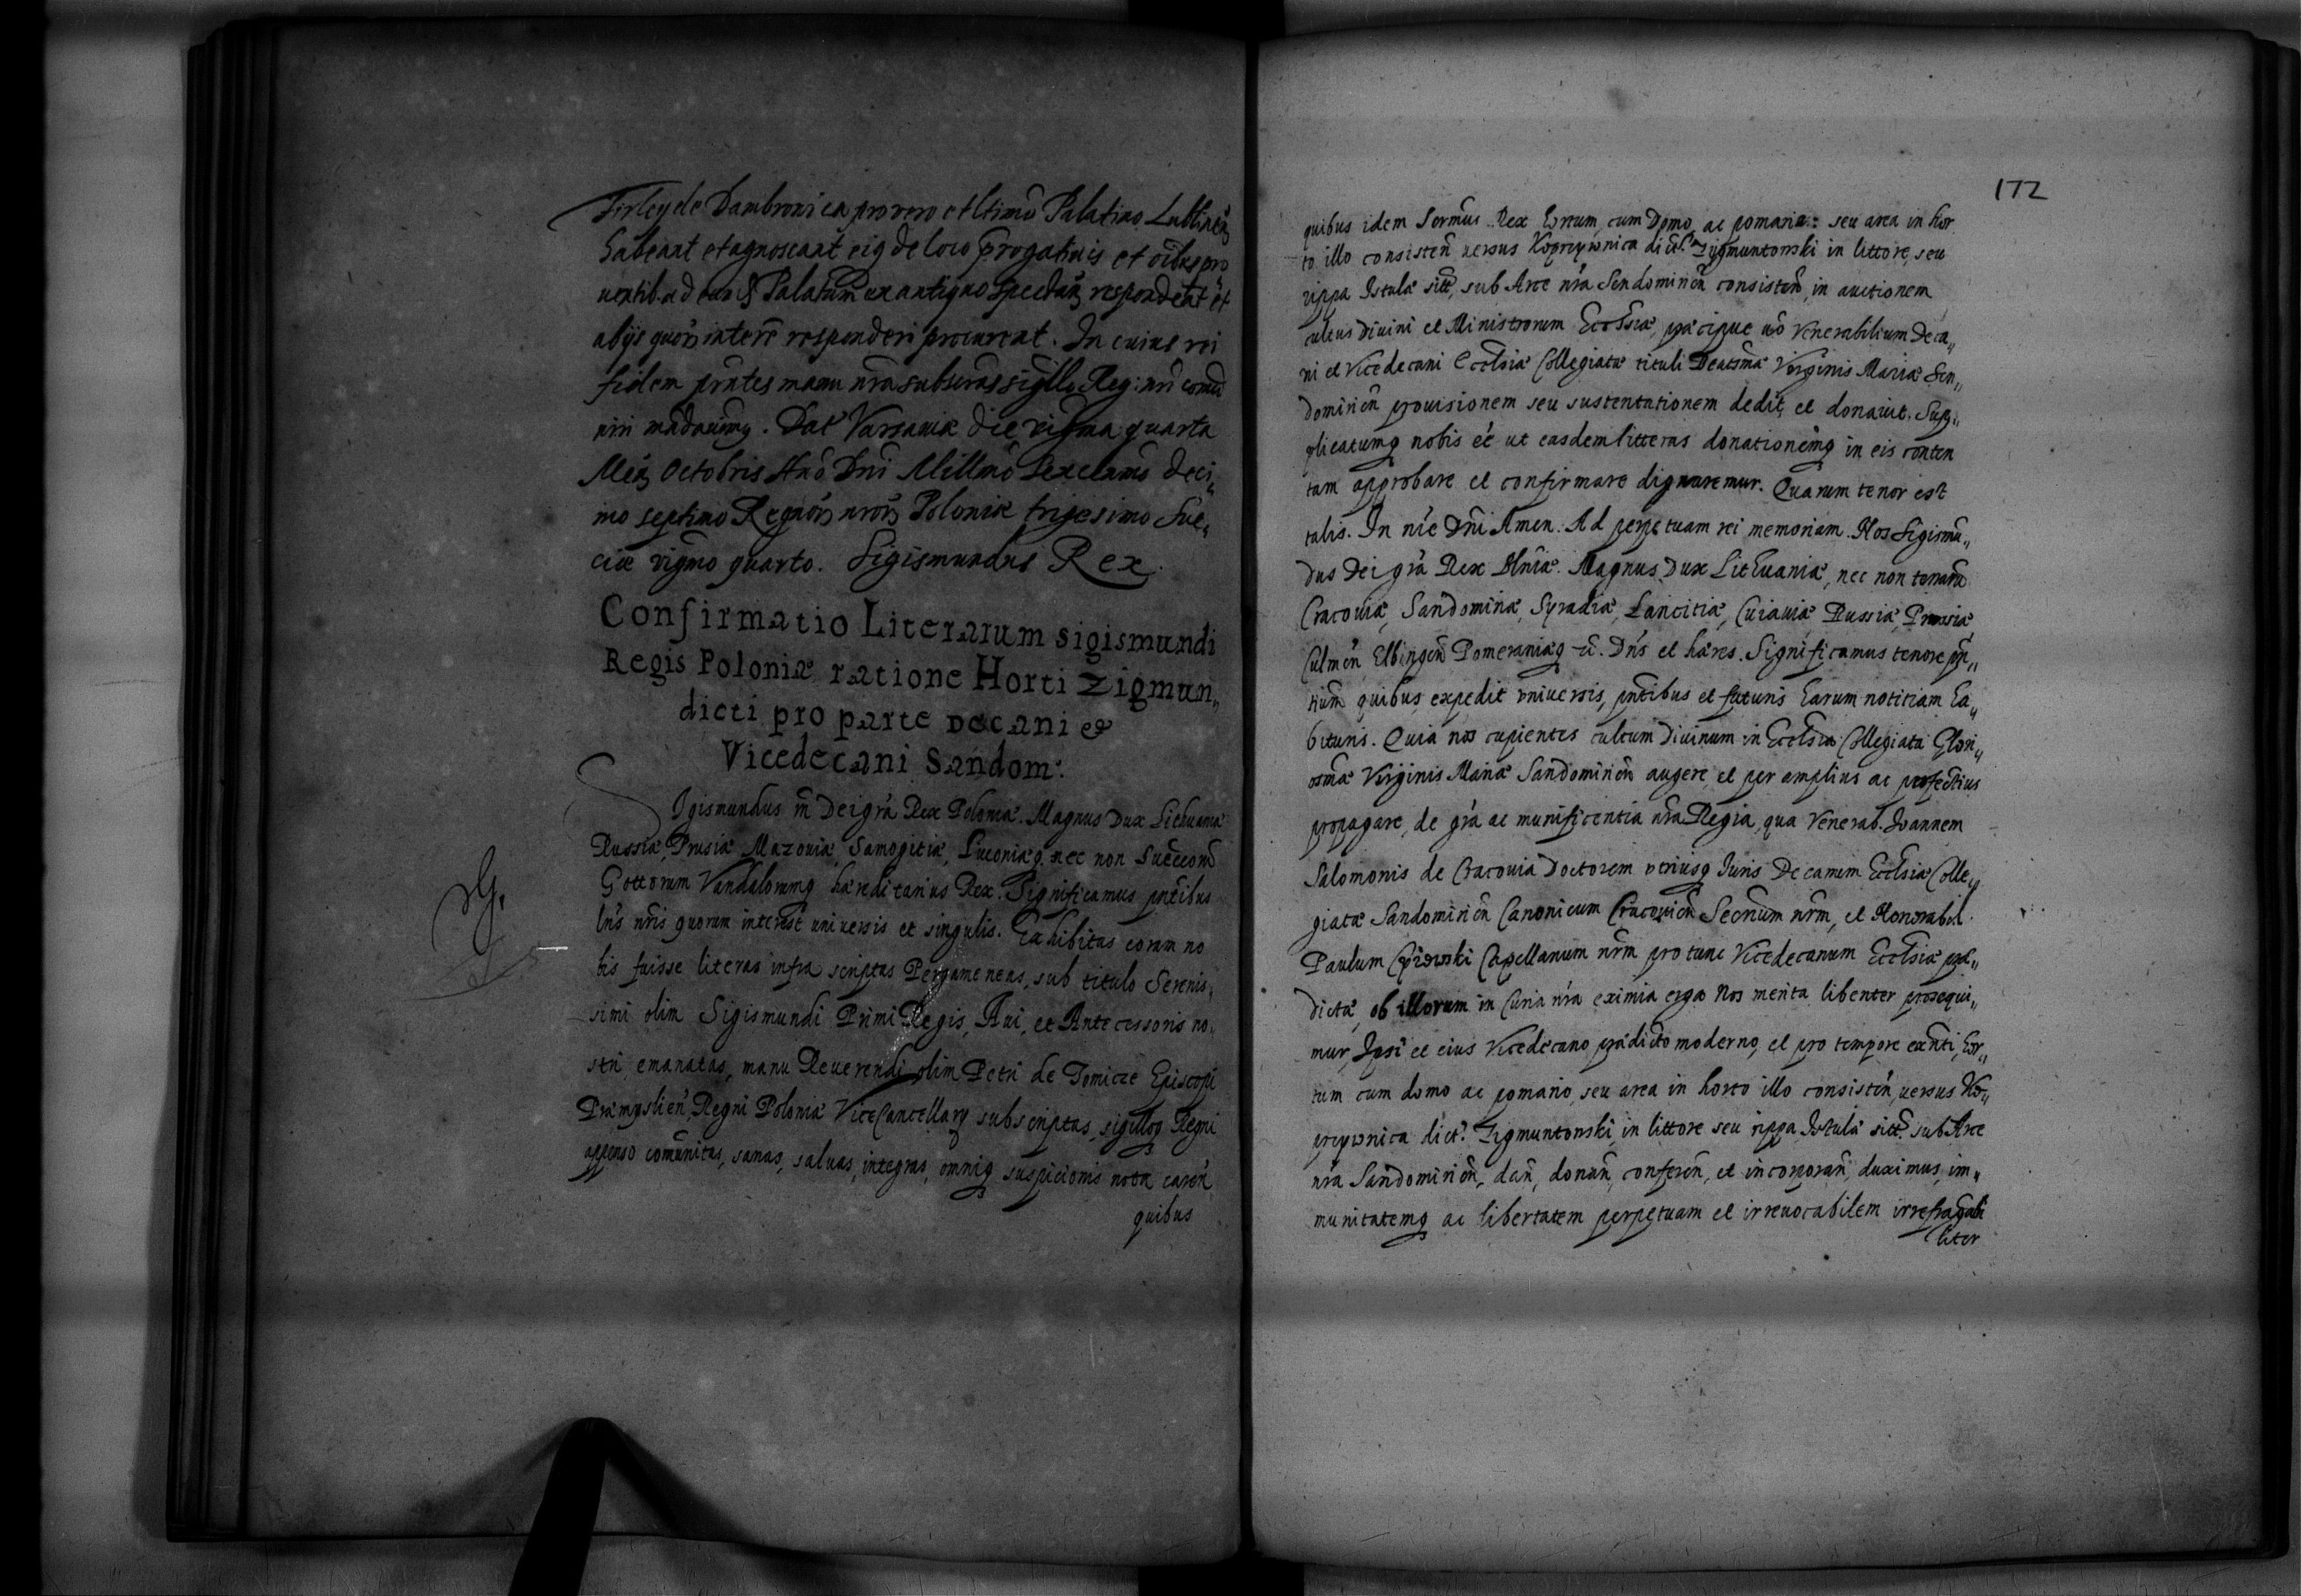 Firley de Dambrovica pro vero et ltimo Palatino Lublineñ
habeant et agnoscant eiq de loco progatiuis et oibus pro
uentib. ad eun Palatum ex antiquo spectañ respondeat et
alijs quor interé responderi procureat. In cuius rei
fidem pñtes manu nra subscras sigillo Reg: nri comu
niri mãdauimq. Dat Varsauiæ die vigma quarta
Meñ Octobris Año Dñi Millmo Sexcmo deci„
mo septimo Regnor nror Poloniæ trigesimo Sue„
ciæ vigmo quarto. Sigismundus Rex.
Confirmatio Literarum sigismundi
Regis Poloniæ ratione Horti Zigmun„
dicti pro parte Decani et
Vicedecani Sandom:
SJgismundus III Dei grã Rex Poloniæ. Magnus Dux Lithuaniæ
Russiæ, Prusiæ Mazouiæ, Samogitiæ, Liuoniæq nec non Sueccorũ
Gottorum Vandalorumq hæreditarius Rex. Significamus pntibus
lris nris quorum interest universis et singulis. Exhibitas coram no
bis fuisse literas infra scriptas Pergameneas, sub titulo Serenis„
simi olim Sigismundi Primi Regis, Aui, et Antecessoris no„
stri, emanatas, manu Reuerendi olim Petri de Tomicze Episcopi
Præmyslieñ, Regni Poloniæ ViceCancellarij subscriptas, sigilloq Regni
appenso comunitas, sanas, saluas, integras, omniq suspicionis nota careñ
quibus
G.
172
quibus idem Sermus Rex hortum cum Domo ac pomario seu area in hor
to illo consisteñ versus Koprzywnica dict. Zigmuntowski in littore, seu
rippa Istulæ sitt, sub Arce nra Sendomirieñ consisteñ, in auctionem
cultus diuini et Ministrorum Ecclsiæ, præcipue uo Venerabilium Deca„
ni et Vicedecani Ecclsiæ Collegiatæ tituli Beatsmæ Virginis Mariæ Sen„
domirieñ prouisionem seu sustentationem dedit et donauit. Supp„
plicatumq nobis eẽ ut easdem litteras donationemq in eis conten
tam approbare et confirmare dignaremur. Quarum tenor est
talis. In nie Dñi Amen. Ad perpetuam rei memoriam. Nos Sigismu„
dus Dei grã Rex Plniæ. Magnus Dux Lithuaniæ, nec non terrarũ
Cracouiæ, Sandomiriæ, Syradiæ, Lanciciæ, Cuiauiæ Russiæ, Prussiæ
Culmeñ Elbingeñ Pomeraniæq ec. Dñs et hæres. Significamus tenore pñ„
tium quibus expedit vniuersis, pntibus et futuris harum notitiam ha„
bituris. Quia nos cupientes cultum diuinum in Ecclsia Collegiata Glori„
osmæ Virginis Mariæ Sandomirieñ augere, et per amplius ac perfectius
propagare, de grã ac munificentia nra Regia, qua Venerab. Joannem
Salomonis de Cracouia Doctorem vtriusq Juris Decanum Ecclsiæ Colle„
giatæ Sandomirieñ Canonicum Cracouieñ Secrium nrm, et Honorabil.
Paulum Capellanum nrm pro tunc Vicedecanum Ecclsiæ præ„
dictæ, ob illorum in Curia nra eximia erga Nos merita libenter prosequi„
mur, Ipsi et eius Vicedecano prædicto moderno, et pro tempore exñti, hor„
tum cum domo ac pomario, seu area in horto illo consisteñ, versus Ko„
przywnica dict. Zigmuntowski, in littore seu rippa Istulæ sitt. sub Arce
nra Sandomirieñ, dañ, donañ, confereñ, et incorporañ, duximus, im„
munitatemq ac libertatem perpetuam et irreuocabilem irrefragabi
liter